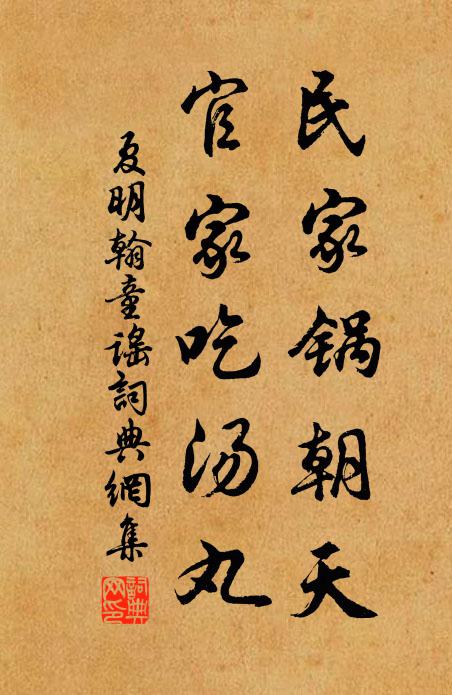 民家锅朝天
官家吃汤丸
夏明翰童谣詞典網集
詞典
网印